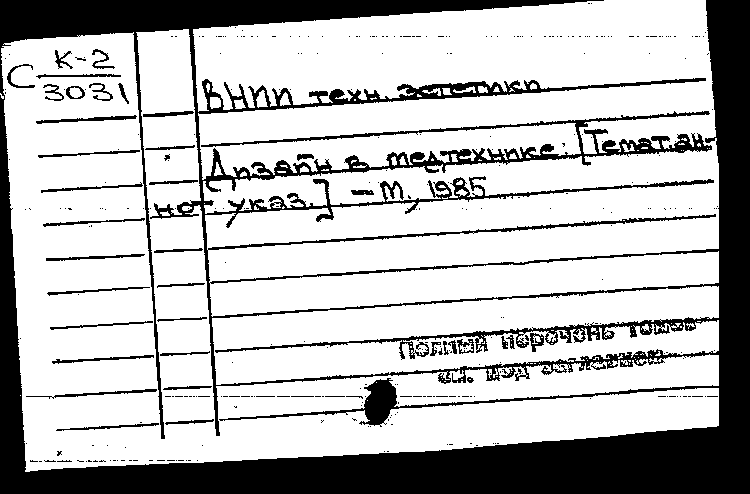 С К-2
3031
ВНИИ техн. эстетики
Дизайн в медтехнике: [Темат. ан-
нот. указ.] – М., 1985
Полный перечень томов
см. под заглавием